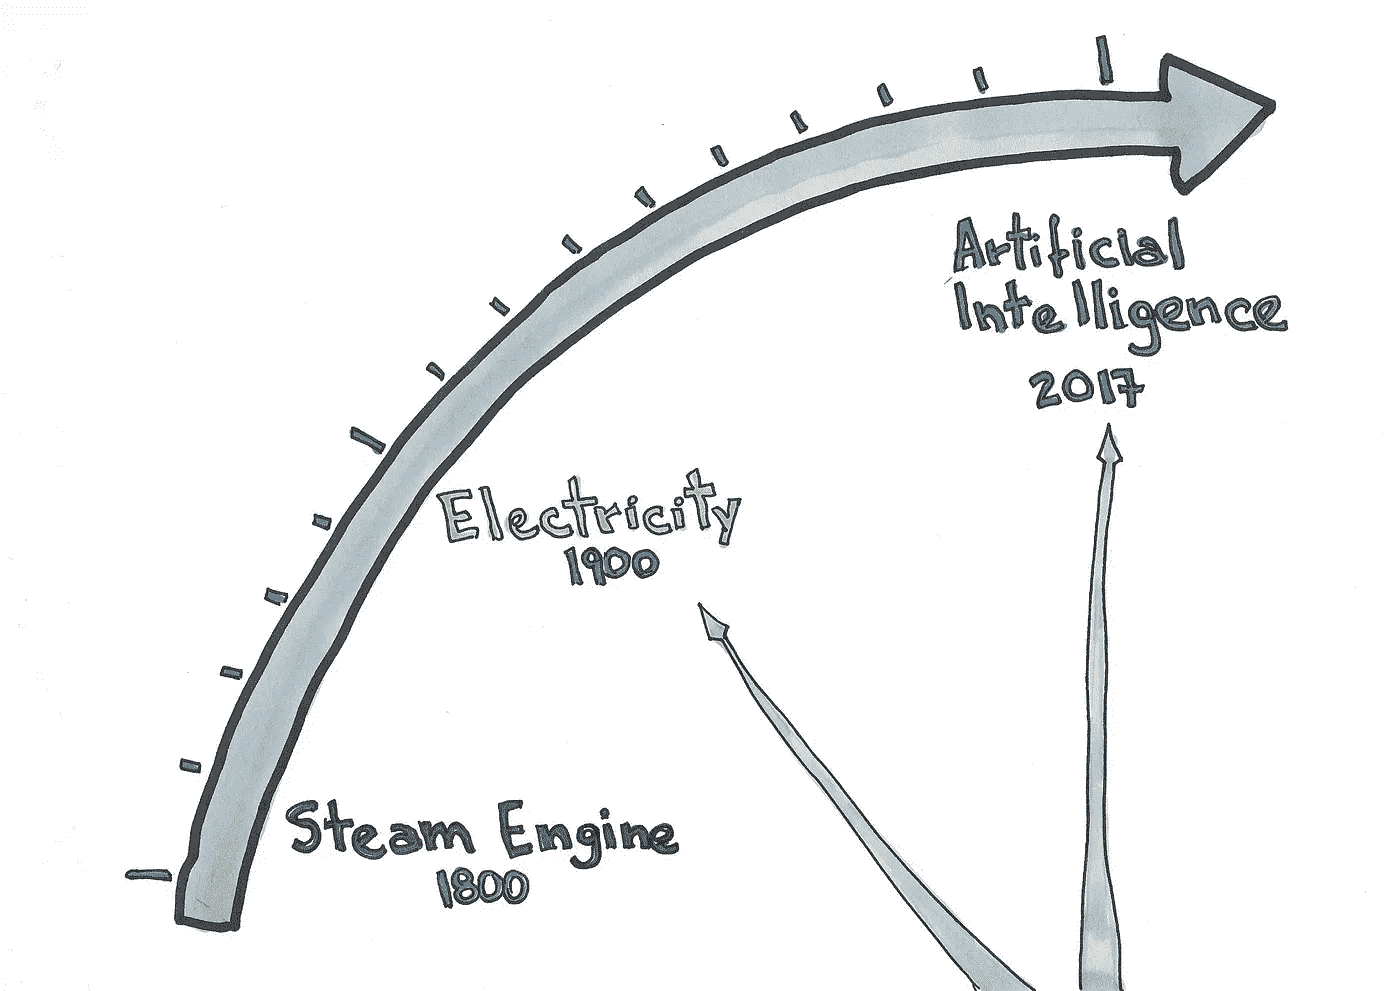 Artificial
Intelligence
2017
Electricity
1900
Steam Engine
1800